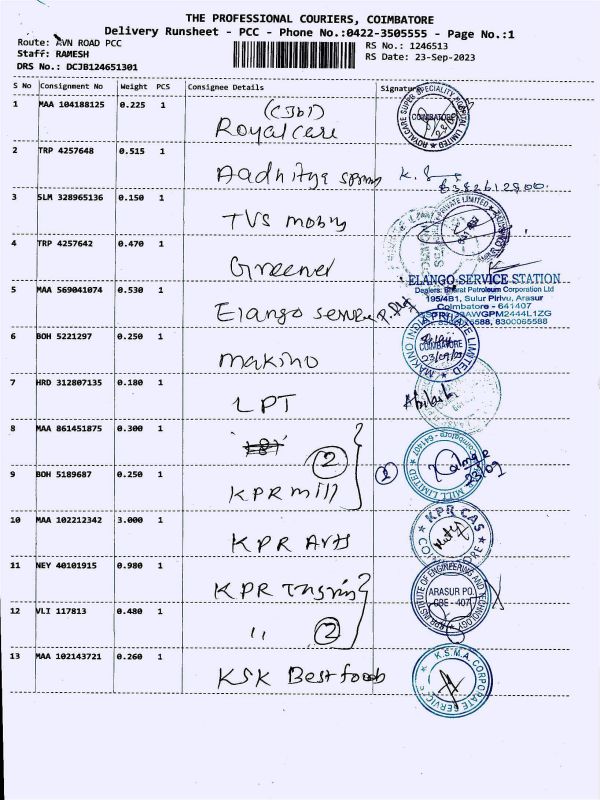 THE PROFESSIONAL COURIERS, COIMBATORE
Delivery Runsheet - PCC - Phone No.:0422-3505555 - Page No.:1
Route: AVN ROAD PCC
RS No.: 1246513
Staff: RAMESH
RS Date: 23-Sep-2023
DRS No.: DCJB124651301
S No Consignment No Weight PCS Consignee Details Signature
1 MAA 104188125 0.225 1
Royalcare
COIMBATORE
2 TRP 4257648 0.515 1
Aadhitya
3 SLM 328965136 0.150 1
TVS
4 TRP 4257642 0.470 1
ELANGO SERVICE STATION
Dealers: Bharat Petroleum Corporation Ltd
195/4B1, Sulur Pirivu, Arasur
Coimbatore - 641407
8300065588
5 MAA 569041074 0.530 1
Elango
6 BOH 5221297 0.250 1
makino
MAKINO INDIA PRIVATE LIMITED
COIMBATORE
23/09/23
7 HRD 312807135 0.180 1
LPT
8 MAA 861451875 0.300 1
2
9 BOH 5189687 0.250 1
KPR mill
2
23/09
10 MAA 102212342 3.000 1
KPR Arts
KPR CAS
11 NEY 40101915 0.980 1
KPR
INSTITUTE OF ENGINEERING AND TECHNOLOGY
ARASUR PO.
CBE - 407
12 VLI 117813 0.480 1
" 2
13 MAA 102143721 0.260 1
KSK Best foods
K.S.M.A. CORPORATE SERVICE